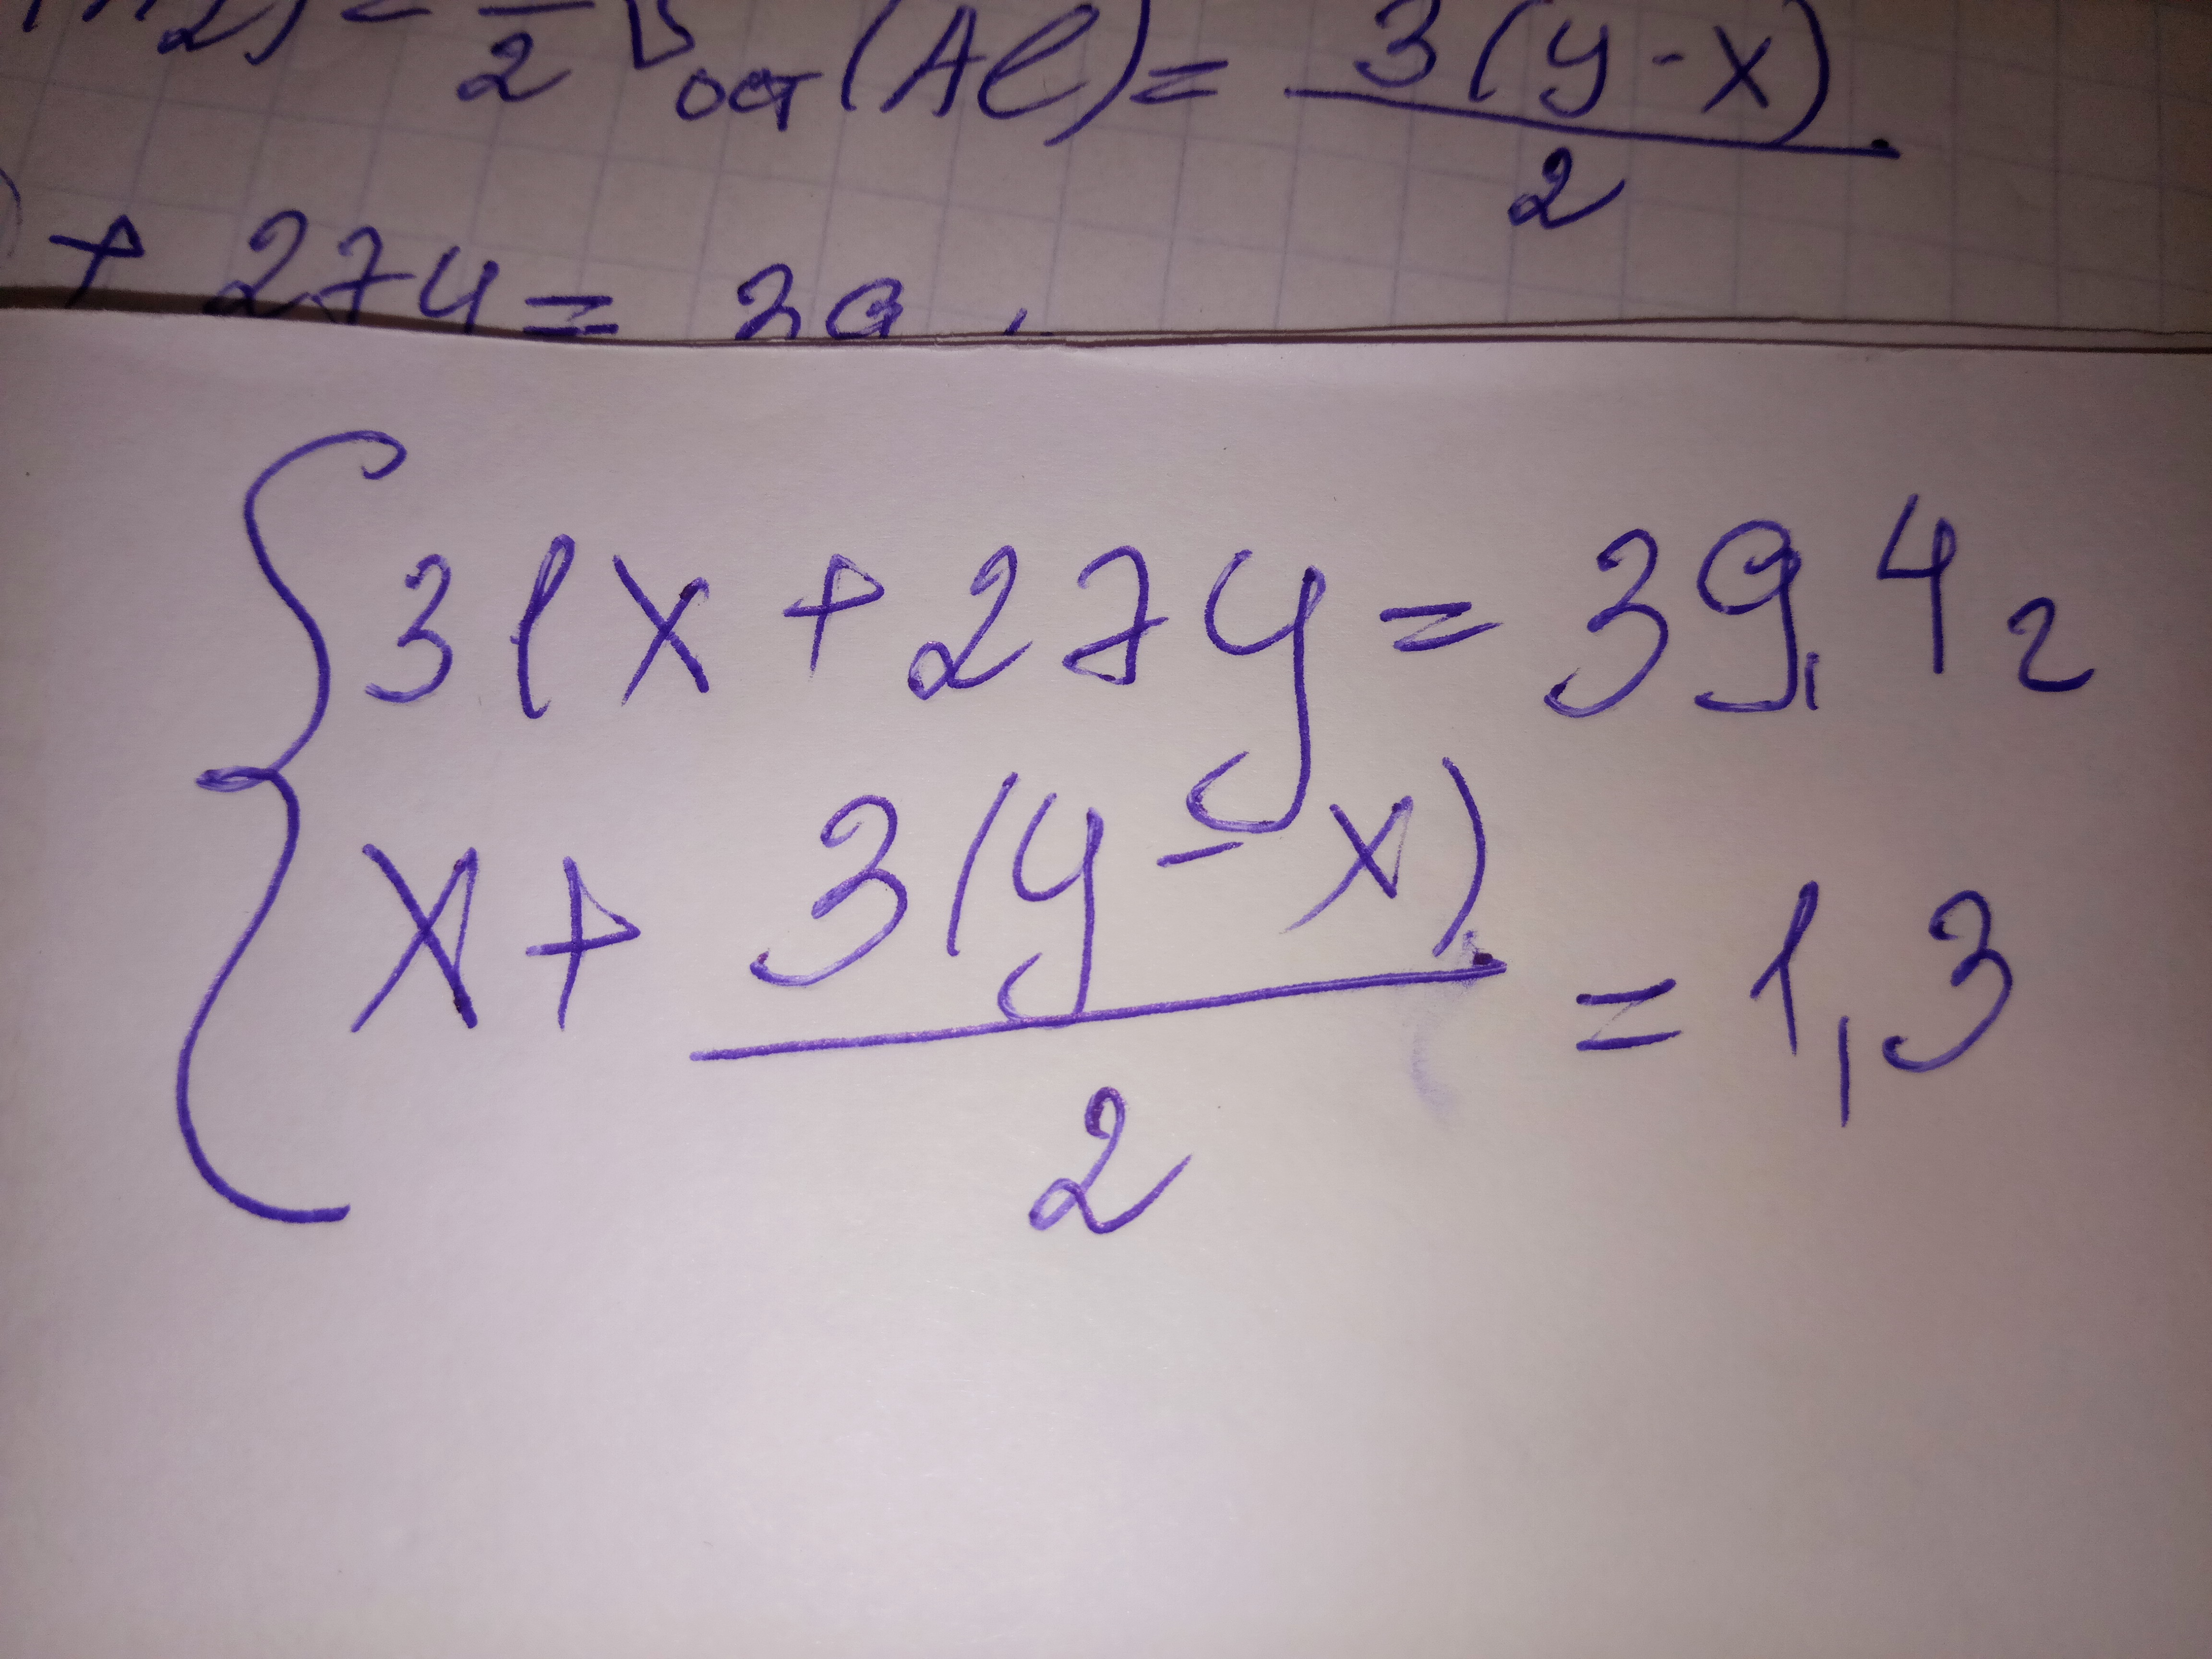 = 2 ост (Al) = 3(y-x) / 2
+ 27y = 39,
31x + 27y = 39,4 г
x + 3(y-x) / 2 = 1,3